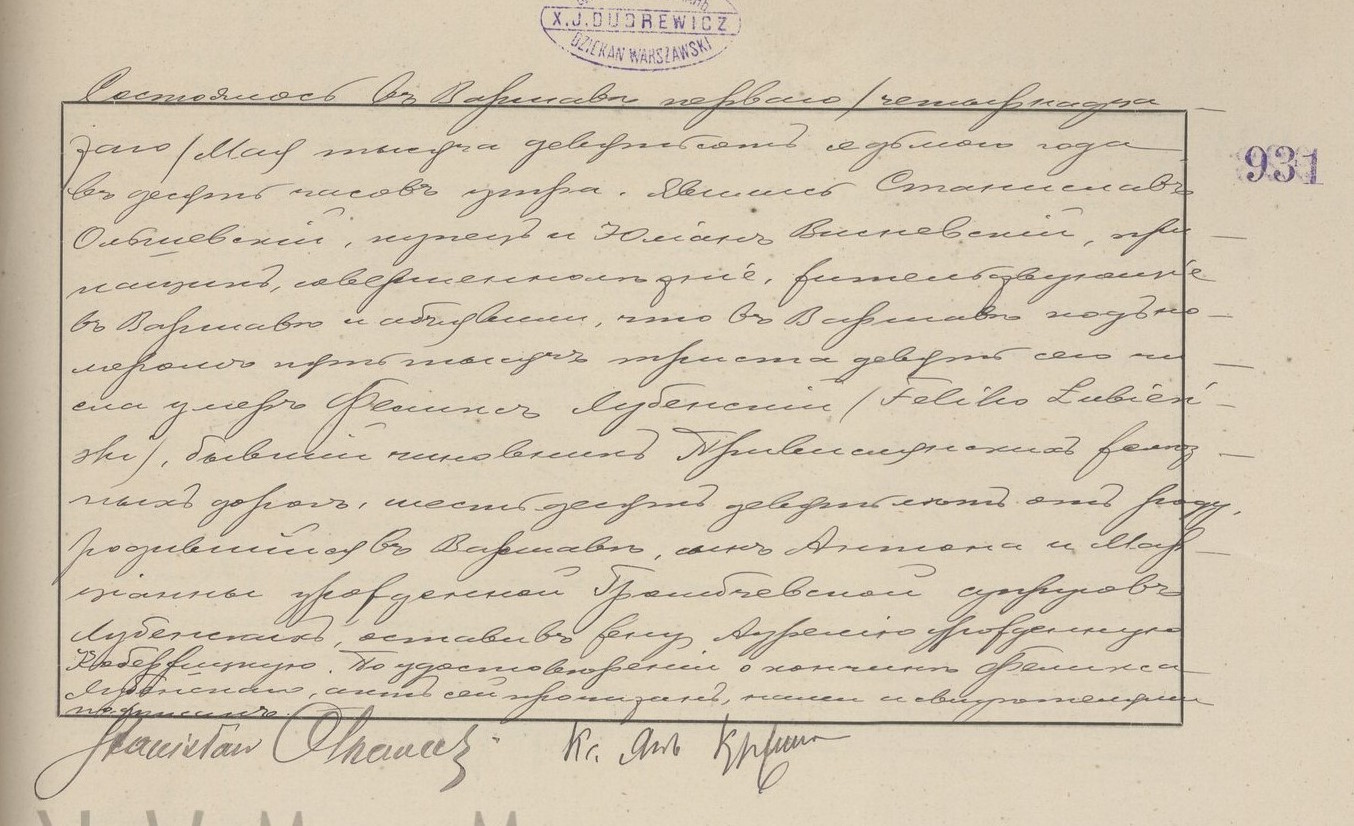 X.J.DUDREWICZ
DZIEKAN WARSZAWSKI
Состоялось въ Варшавѣ перваго /четырнадца
таго/ Мая тысяча девятьсотъ седьмого года
931
въ десять часовъ утра. Явились Станиславъ
Ольшевскій, купецъ и Юліанъ Вишневскій, при
кащикъ, совершеннолѣтніе, жительствующіе
въ Варшавѣ и объявили, что въ Варшавѣ подъ но
меромъ пять тысячъ триста девять сего чи
сла умеръ Феликсъ Лубенскій /Feliks Łubień
ski/, бывшій чиновникъ Привислянскихъ желѣз
ныхъ дорогъ, шестьдесятъ девять лѣтъ отъ роду,
родившійся въ Варшавѣ, сынъ Антона и Мар
іанны урожденной супруговъ
Лубенскихъ, оставивъ жену Аурелію урожденную
По удостовѣреніи о кончинѣ Феликса
Лубенскаго, актъ сей прочитанъ, нами и свидѣтелями
подписанъ.
Stanisław
Кс. Янъ